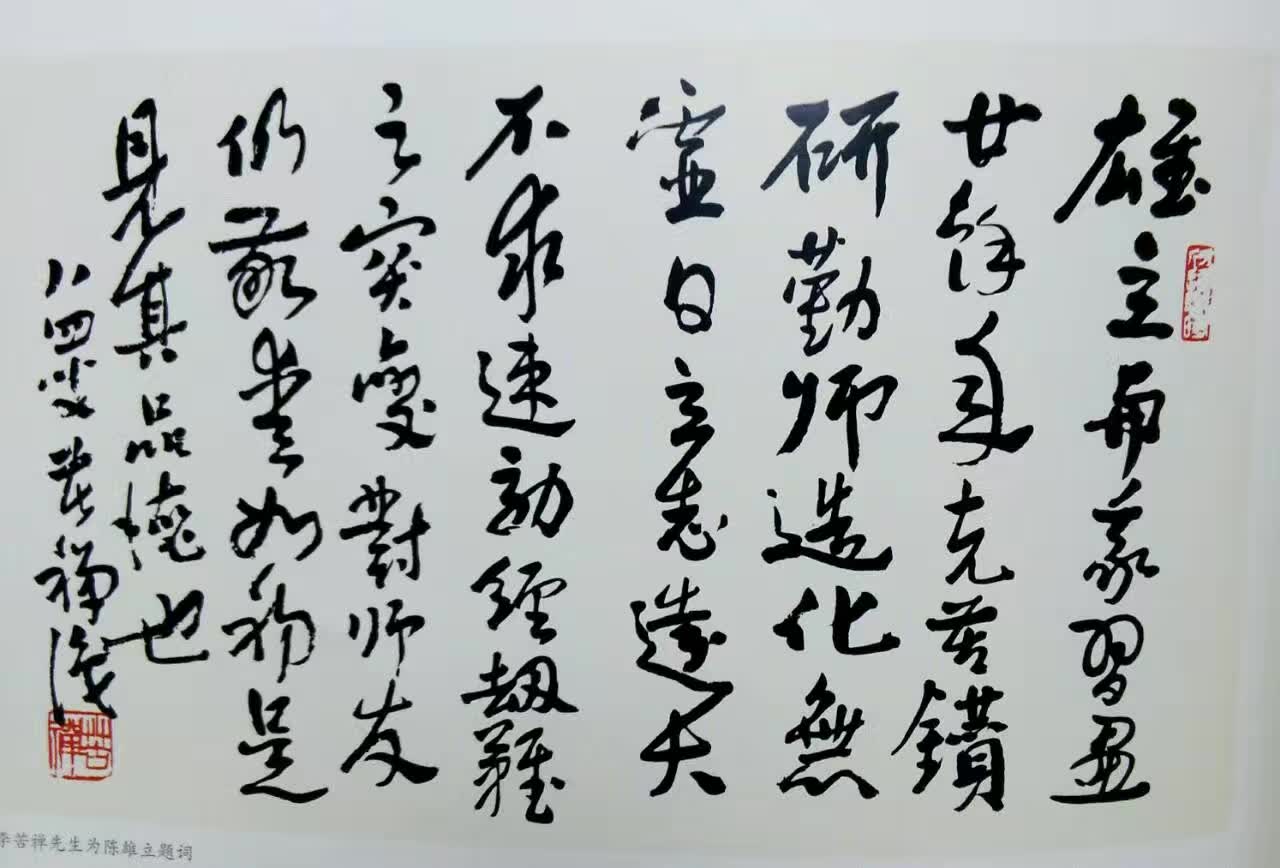 雄立習畫
廿餘年克苦鑽
研勤師造化無
虛日立志遠大
不求速効經劫難
之突變對師友
仍敬愛如初足
見其品德也
八四叟苦禅識
苦禪
李苦禅先生为陈雄立题词